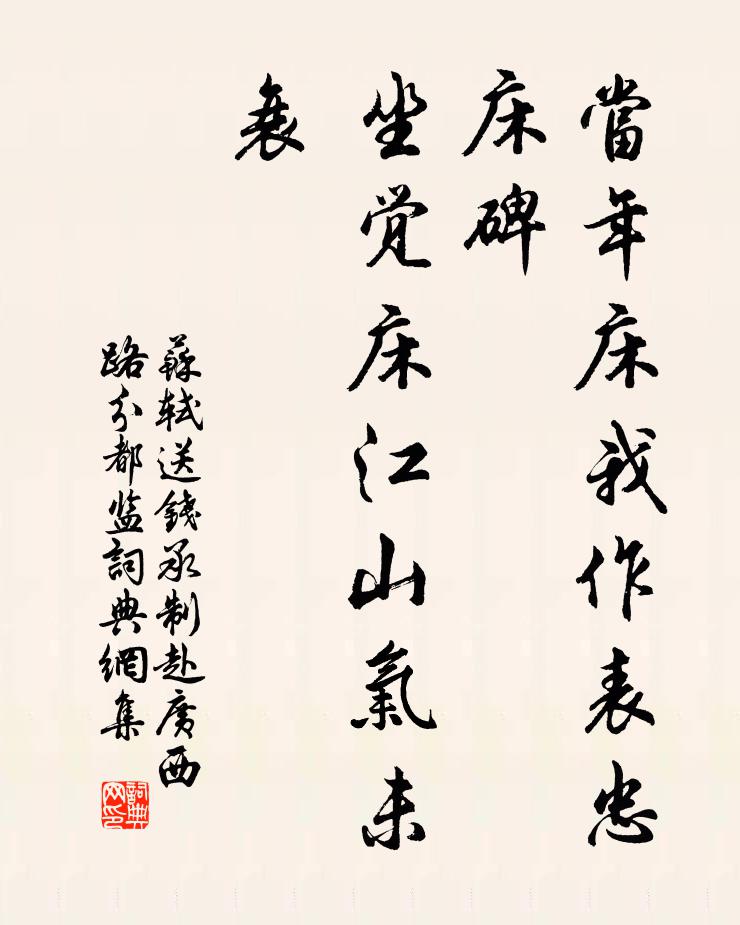 當年床我作表忠
床碑
坐覺床江山氣未
衰
蘇軾送錢承制赴廣西
路分都監詞典網集
詞典
网印